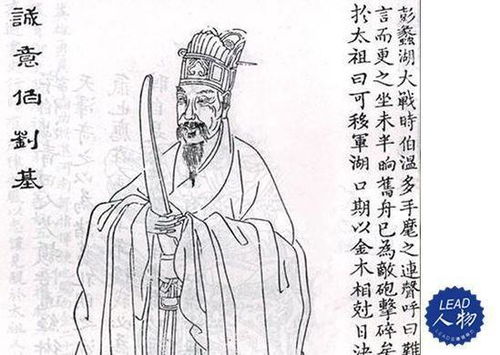 彭蠡湖大戰時伯溫多手麾之連聲呼曰難
言而更之坐未半晌舊舟已為敵砲擊碎矣
於太祖曰可移軍湖口期以金木相尅日決
誠意伯劉基
LEAD
人物